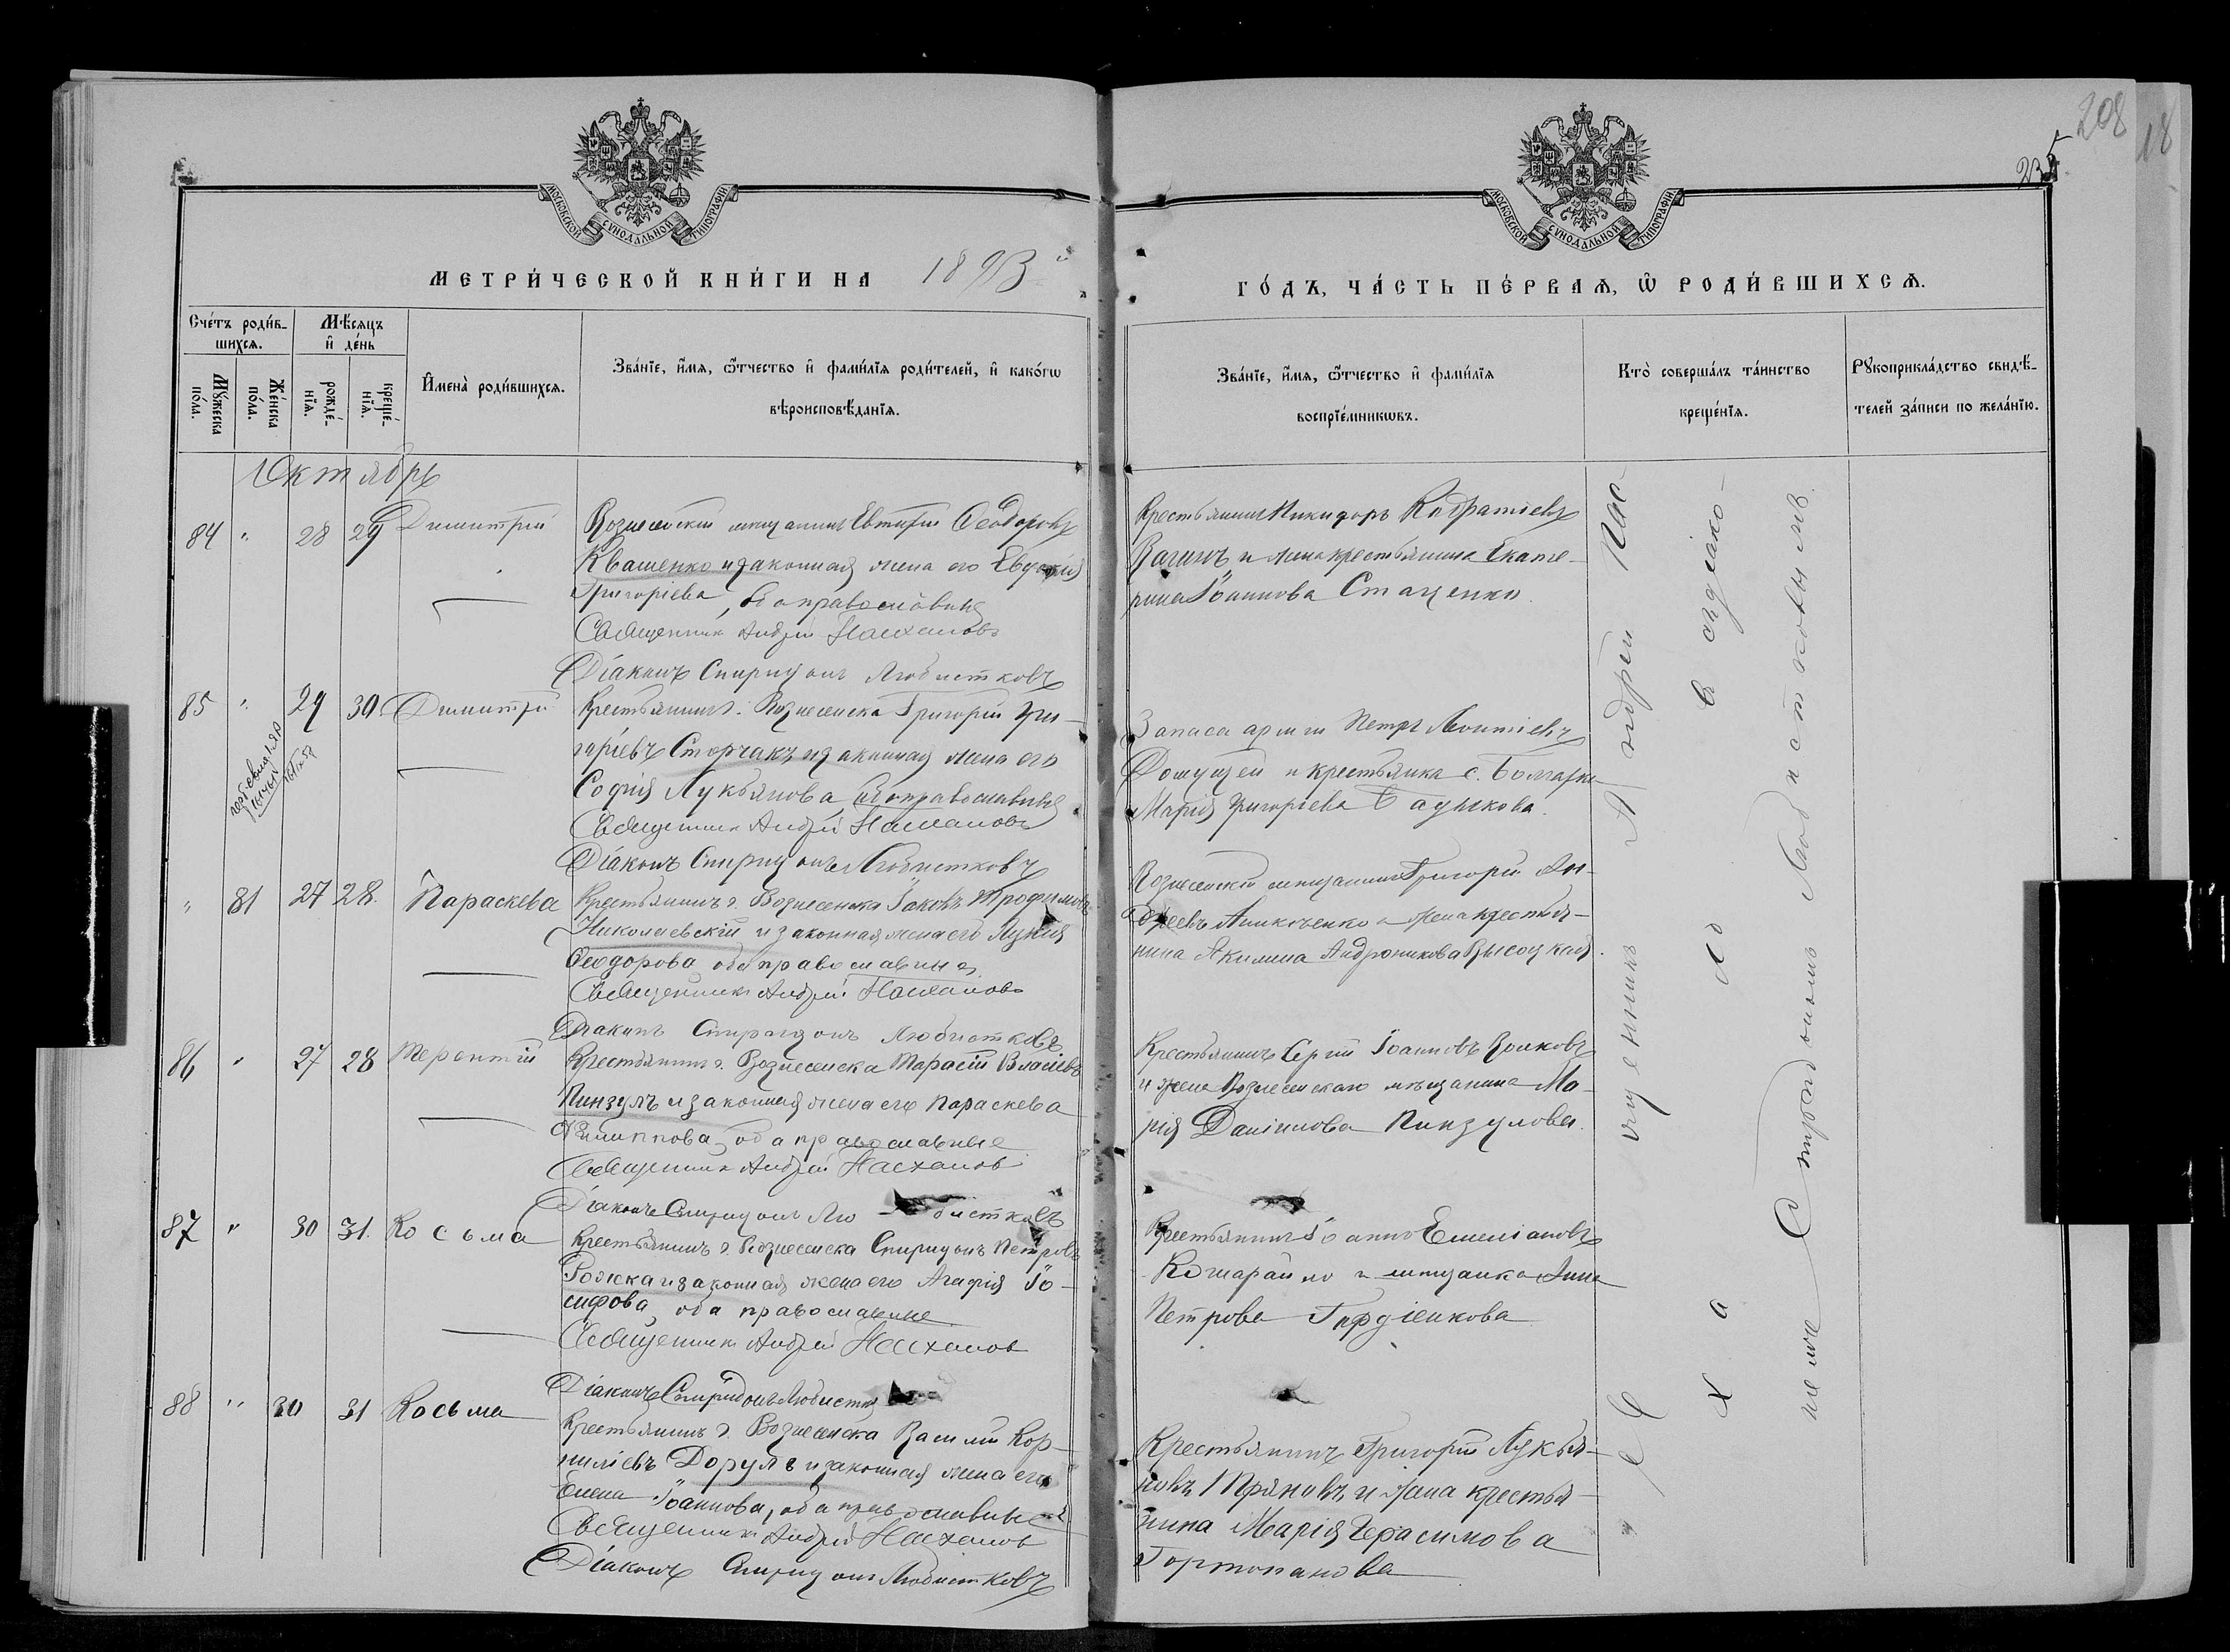 208
18
235
МОСКОВСКОЙ СѴНОДАЛЬНОЙ ТИПОГРАФІИ
МОСКОВСКОЙ СѴНОДАЛЬНОЙ ТИПОГРАФІИ
МЕТРИ́ЧЕСКОЙ КНИ́ГИ НА 1893й
ГО́ДЪ, ЧА́СТЬ ПЕ́РВАѦ, Ѡ РОДИ́ВШИХСѦ.
Сче́тъ роди́в-
шихсѧ.
Мꙋ́жеска
по́ла.
Же́нска
по́ла.
Мѣ́сѧцъ
и҆ де́нь
рожде́-
нїѧ.
креще́-
нїѧ.
И҆мена̀ роди́вшихсѧ.
Зва́нїе, и҆́мѧ, ѻ҆́тчество и҆ фами́лїѧ роди́телей, и҆ како́гѡ
вѣроисповѣ́данїѧ.
Зва́нїе, и҆́мѧ, ѻ҆́тчество и҆ фами́лїѧ
воспрїе́мникѡвъ.
Кто̀ соверша́лъ та́инство
креще́нїѧ.
Рꙋкоприкла́дство свидѣ́-
телей за́писи по жела́нїю.
Октябрь
84 " 28 29 Димитрій
Вознесенскій мѣщанинъ Евтихій Ѳеодоровъ
Квашенко и законная жена его Евдокія
Григоріева, оба православные
Священникъ Андрей Насхановъ
Діаконъ Спиридонъ Любистковъ
Крестьянинъ Никифоръ Кодратіевъ
Вагинъ и жена крестьянина Екате-
рина Іоаннова Стаценко.
85 " 29 30. Димитрій
Крестьянинъ г. Вознесенска Григорій Гри-
горіевъ Сторчакъ и законная жена его
Софія Лукьянова, оба православные
Священникъ Андрей Насхановъ
Діаконъ Спиридонъ Любистковъ
Запаса арміи Петръ Леонтіевъ
и крестьянка с. Болгарка
Марія Григоріева
" 81 27 28. Параскева
Крестьянинъ г. Вознесенска Іаковъ Трофимовъ
Николаевскій и законная жена его Лукія
Ѳеодорова оба православные
Священникъ Андрей Насхановъ
Діаконъ Спиридонъ Любистковъ
Вознесенскій мѣщанинъ Григорій Ан-
дреевъ и жена крестья-
нина Акилина Андроникова Высоцкая.
86 " 27 28 Терентій
Крестьянинъ г. Вознесенска Тарасій Власіевъ
Пинзулъ и законная жена его Параскева
Филиппова, оба православные
Священникъ Андрей Насхановъ
Діаконъ Спиридонъ Любистковъ
Крестьянинъ Сергій Іоанновъ Волковъ
и жена Вознесенскаго мѣщанина Ма-
рія Даніилова Пинзулова.
87 " 30 31. Косьма
Крестьянинъ г. Вознесенска Спиридонъ Петровъ
Рожка и законная жена его Агафія Іо-
сифова, оба православные
Священникъ Андрей Насхановъ
Діаконъ Спиридонъ Любистковъ
Крестьянинъ Іоаннъ Емеліановъ
Кошарайло и мѣщанка Анна
Петрова Гордіенкова
88 " 30 31 Косьма
Крестьянинъ г. Вознесенска Василій Кор-
ниліевъ Дорулъ и законная жена его
Елена Іоаннова, оба православные
Священникъ Андрей Насхановъ
Діаконъ Спиридонъ Любистковъ
Крестьянинъ Григорій Лукья-
новъ и жена крестья-
нина Марія Герасимова
Гортопанова
Священникъ Андрей Нас-
хановъ съ діако-
номъ Спиридономъ Любистковымъ.